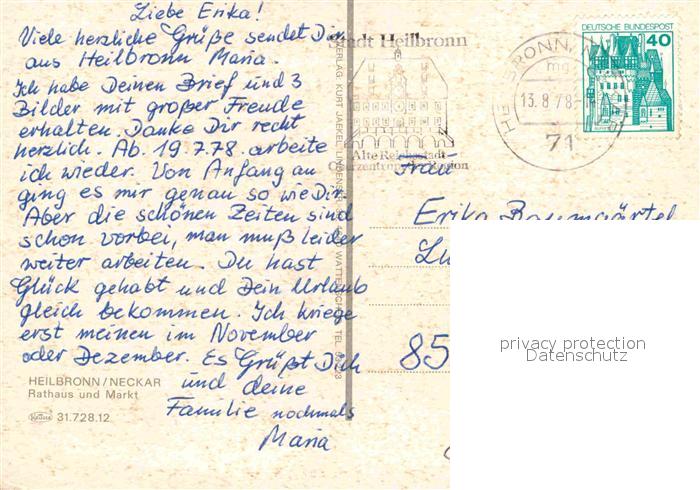 Liebe Erika!
Viele herzliche Grüße sendet Dir
aus Heilbronn Maria.
Ich habe Deinen Brief und 3
Bilder mit großer Freude
erhalten. Danke Dir recht
herzlich. Ab. 19.7.78 arbeite
ich wieder. Von Anfang an
ging es mir genau so wie Dir.
Aber die schönen Zeiten sind
schon vorbei, man muß leider
weiter arbeiten. Du hast
Glück gehabt und Dein Urlaub
gleich bekommen. Ich kriege
erst meinen im November
oder Dezember. Es Grüßt Dich
und deine
Familie nochmals
Maria
HEILBRONN/NECKAR
Rathaus und Markt
Krüger 31.728.12
VERLAG KURT JAEKEL
Stadt Heilbronn
Alte Reichsstadt
Oberzentrum der Region
13.8.78
71
DEUTSCHE BUNDESPOST
40
Frau
Erika Baumgärtel
85
privacy protection
Datenschutz